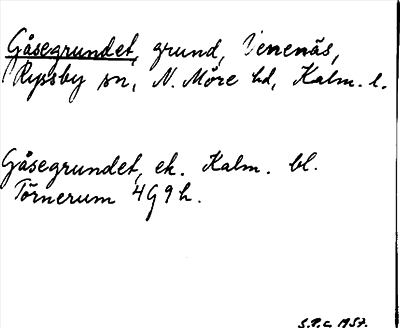 Gåsegrundet, grund, Venenäs,
Ryssby sn, N. Möre hd, Kalm. l.
Gåsegrundet, ek. Kalm. bl.
Törnerum 4G9h.
S.P.C. 1957.